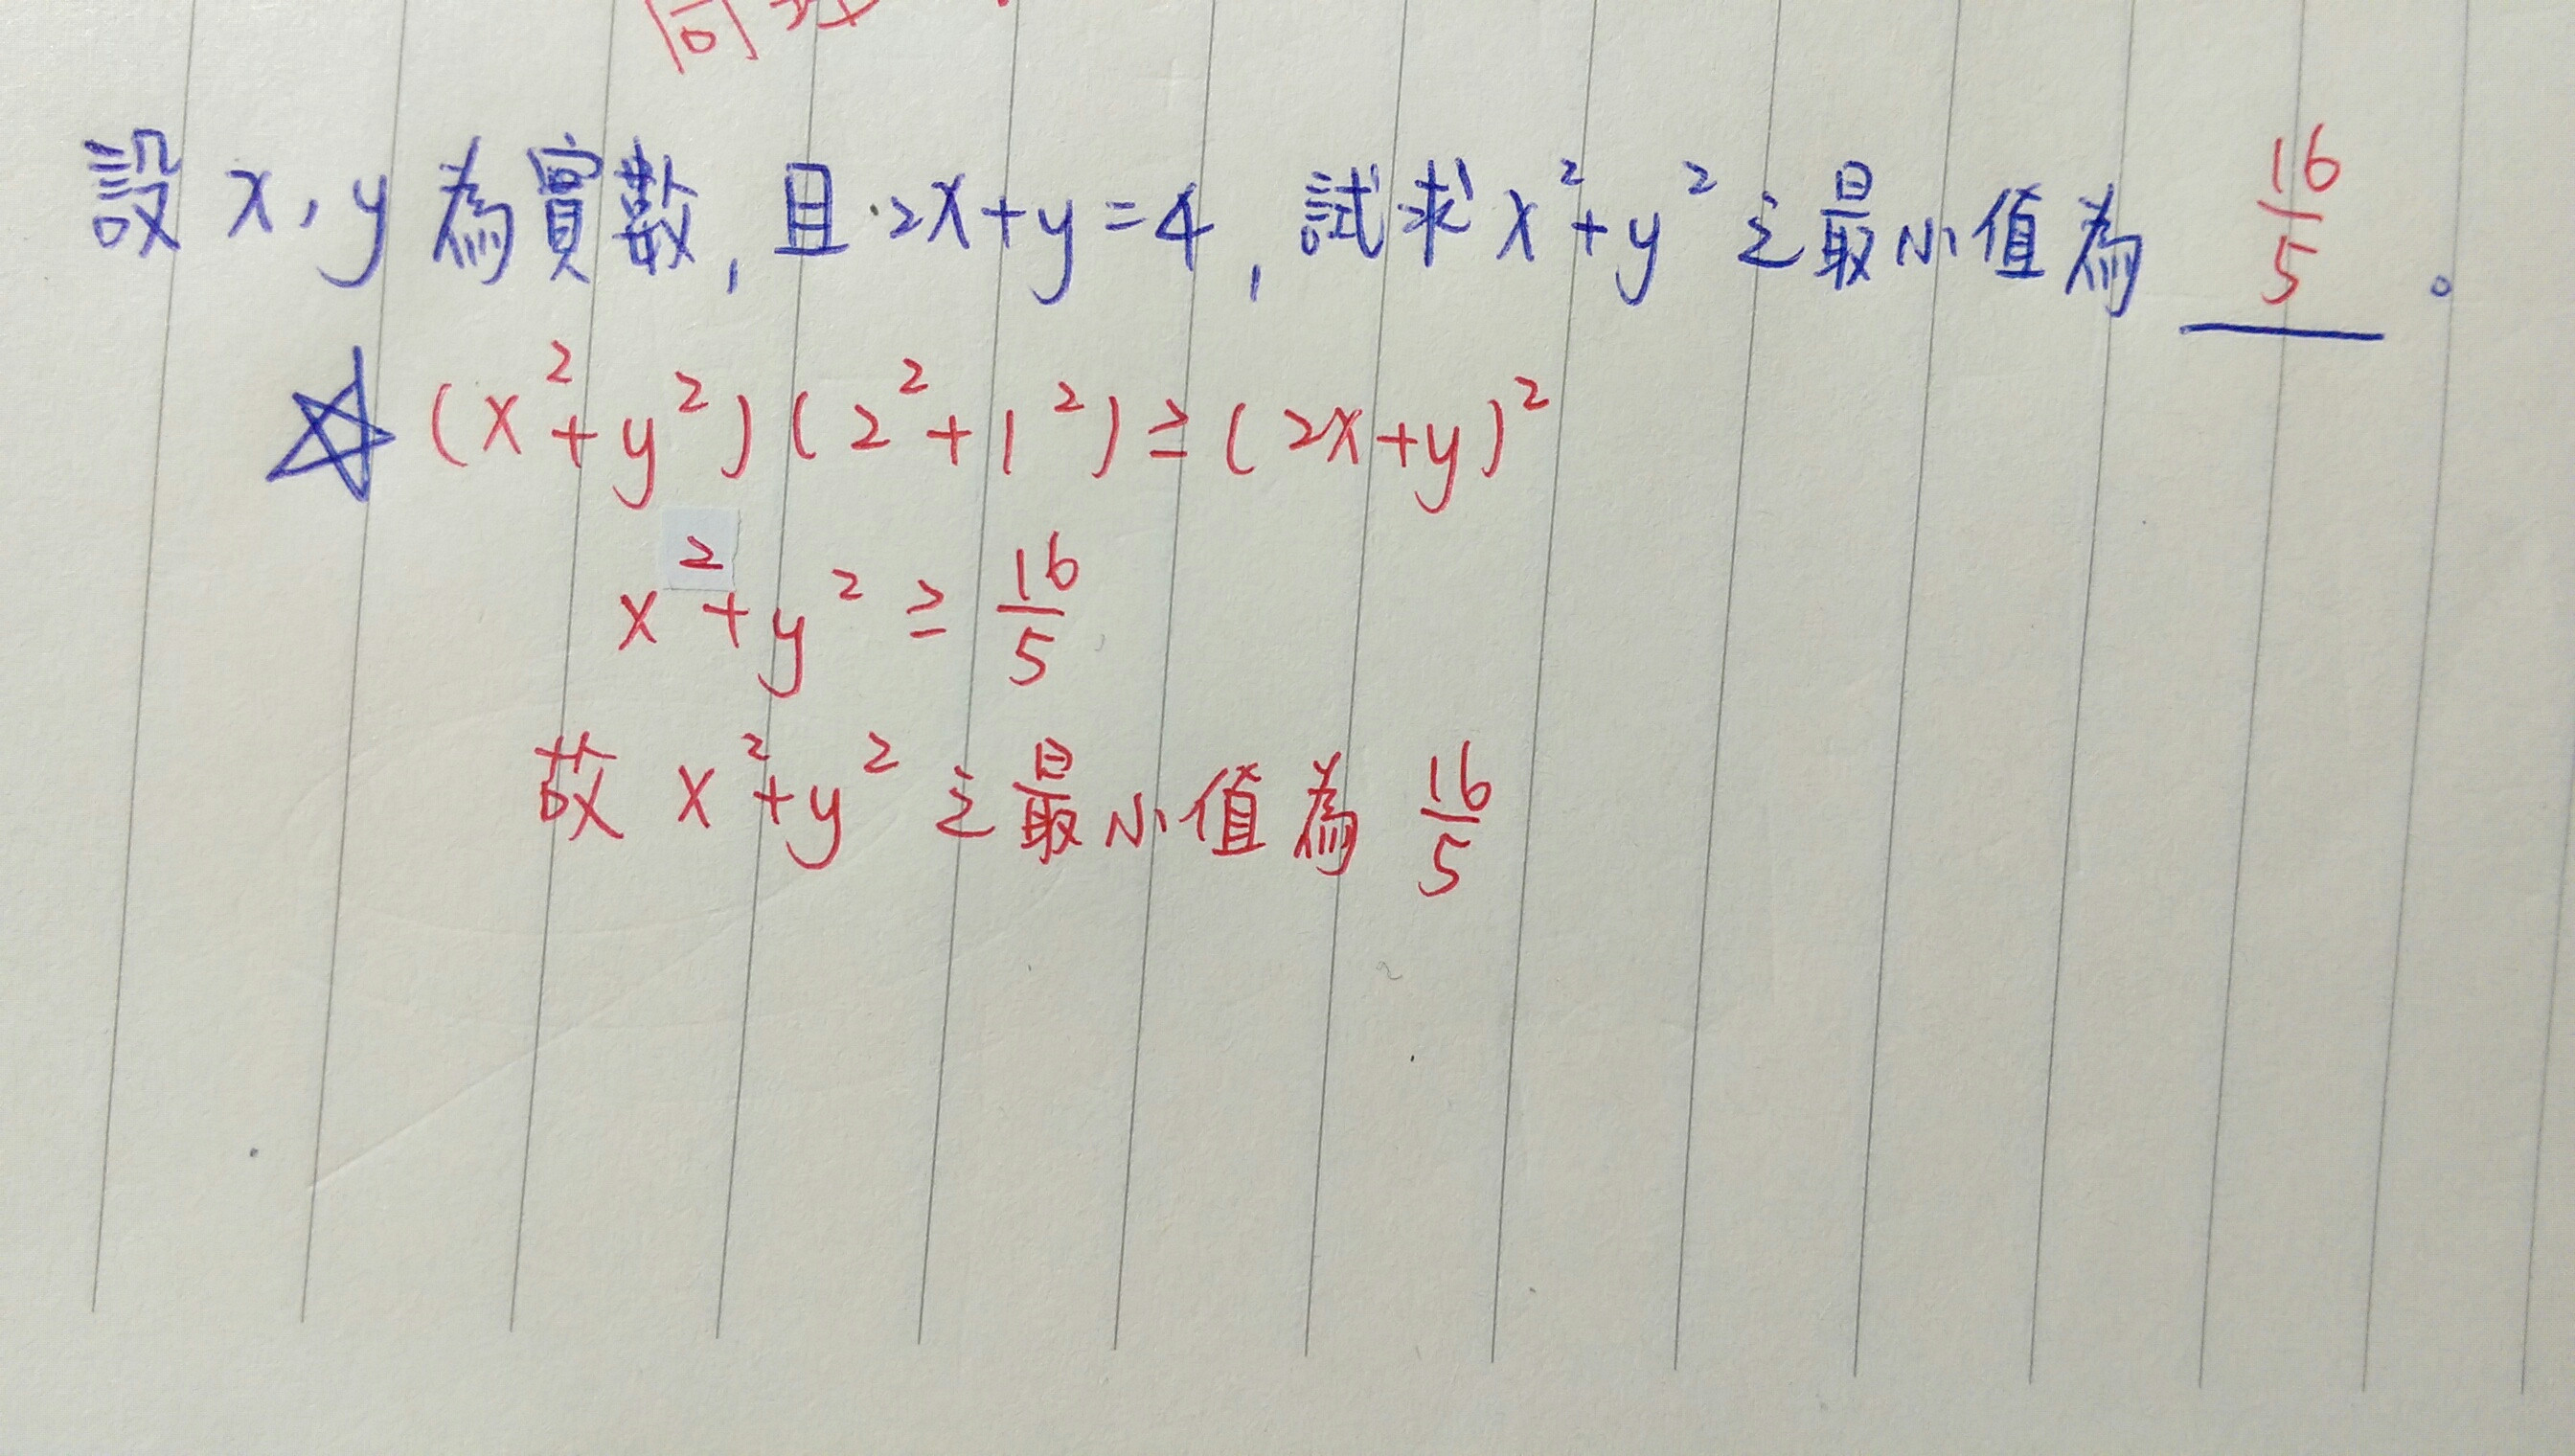 設 x, y 為實數, 且 2x+y=4, 試求 x²+y² 之最小值為 16/5 。
☆ (x²+y²)(2²+1²) ≥ (2x+y)²
x²+y² ≥ 16/5
故 x²+y² 之最小值為 16/5